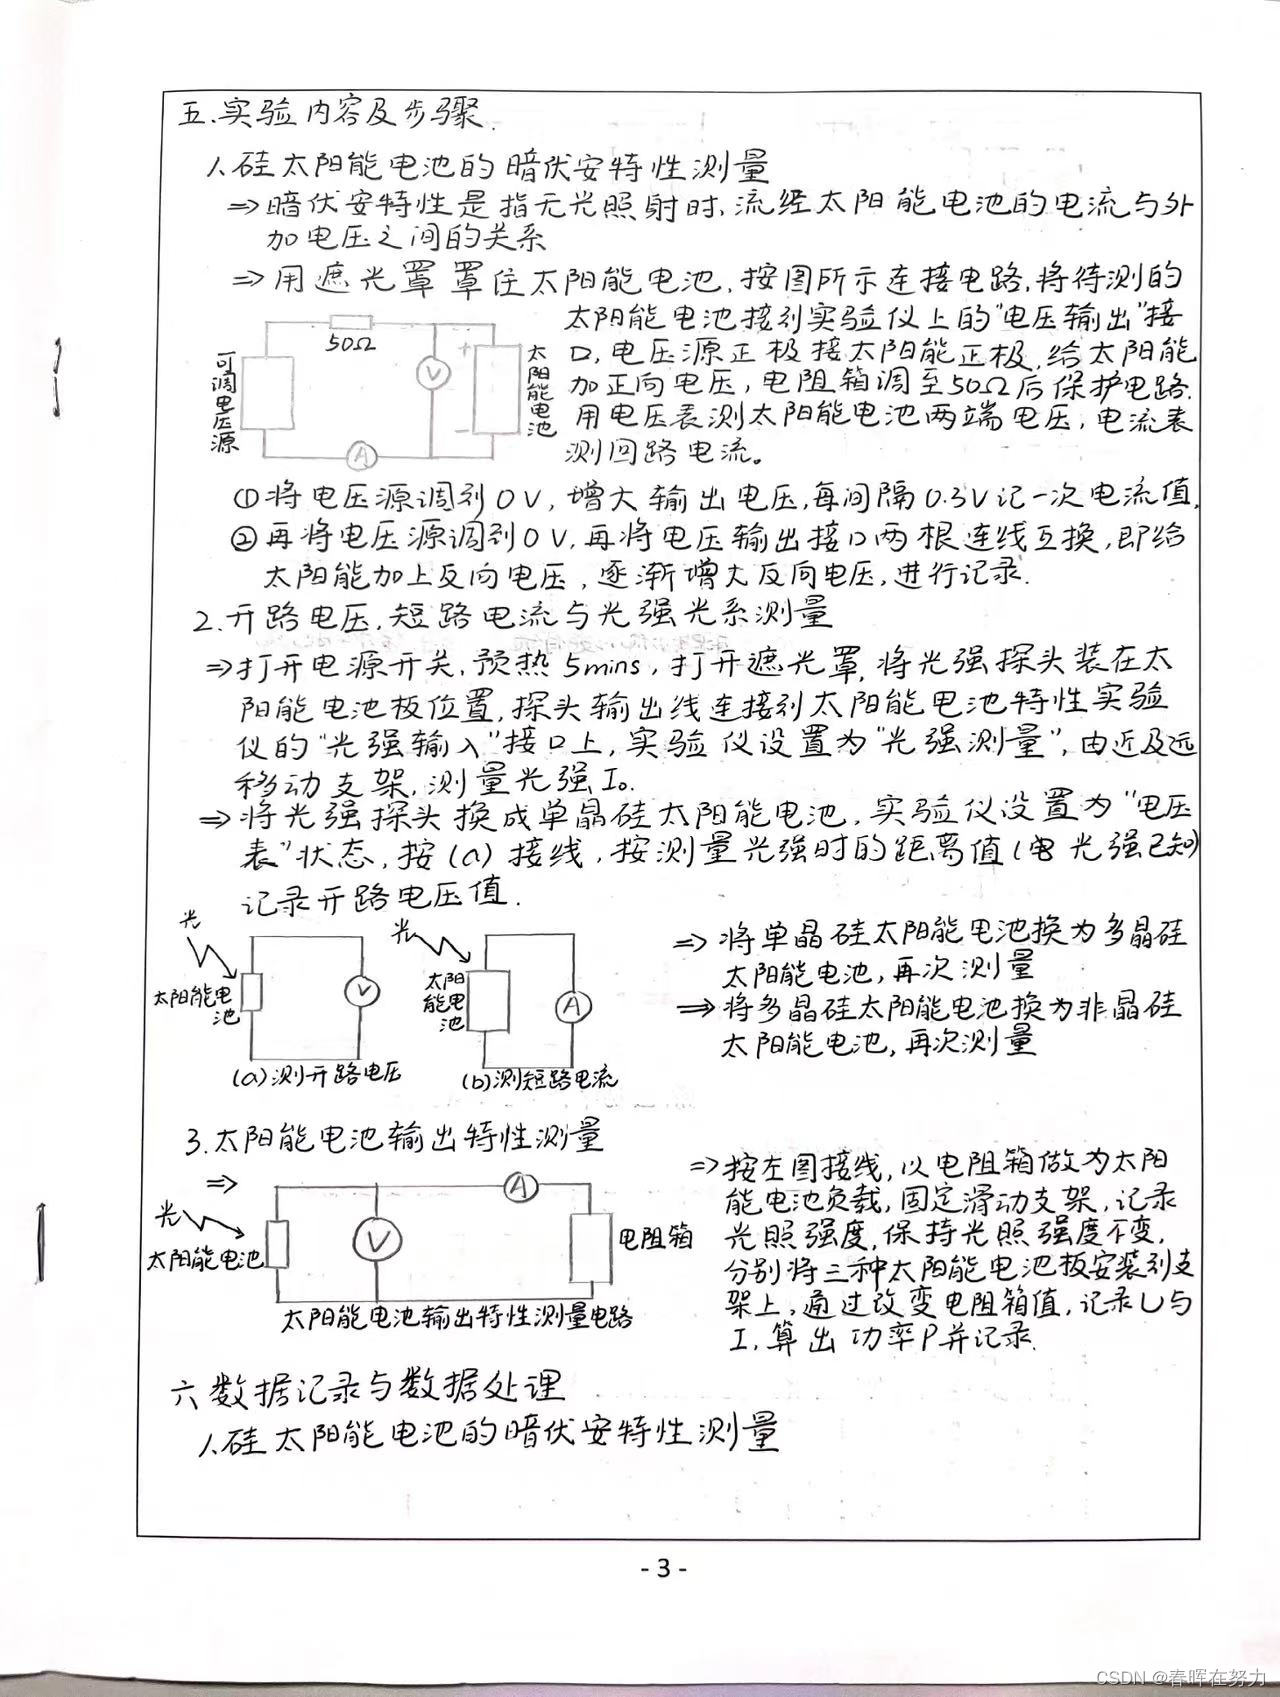 五.实验内容及步骤.
1.硅太阳能电池的暗伏安特性测量
⇒暗伏安特性是指无光照射时,流经太阳能电池的电流与外
加电压之间的关系
⇒用遮光罩罩住太阳能电池,按图所示连接电路,将待测的
太阳能电池接到实验仪上的"电压输出"接
口,电压源正极接太阳能正极,给太阳能
加正向电压,电阻箱调至50Ω后保护电路.
用电压表测太阳能电池两端电压,电流表
测回路电流。
50Ω
可调电压源
V
+
-
太阳能电池
A
①将电压源调到0V,增大输出电压,每间隔0.3V记一次电流值,
②再将电压源调到0V,再将电压输出接口两根连线互换,即给
太阳能加上反向电压,逐渐增大反向电压,进行记录.
2.开路电压,短路电流与光强光系测量
⇒打开电源开关,预热5mins,打开遮光罩,将光强探头装在太
阳能电池板位置,探头输出线连接到太阳能电池特性实验
仪的"光强输入"接口上,实验仪设置为"光强测量",由近及远
移动支架,测量光强I₀.
⇒将光强探头换成单晶硅太阳能电池,实验仪设置为"电压
表"状态,按(a)接线,按测量光强时的距离值(光强已知)
记录开路电压值.
光
太阳能电池
V
(a)测开路电压
光
太阳能电池
A
(b)测短路电流
⇒将单晶硅太阳能电池换为多晶硅
太阳能电池,再次测量
⇒将多晶硅太阳能电池换为非晶硅
太阳能电池,再次测量
3.太阳能电池输出特性测量
⇒
光
太阳能电池
V
A
电阻箱
太阳能电池输出特性测量电路
⇒按左图接线,以电阻箱做为太阳
能电池负载,固定滑动支架,记录
光照强度,保持光照强度不变,
分别将三种太阳能电池板安装到支
架上,通过改变电阻箱值,记录U与
I,算出功率P并记录.
六数据记录与数据处理
1.硅太阳能电池的暗伏安特性测量
- 3 -
CSDN @春晖在努力